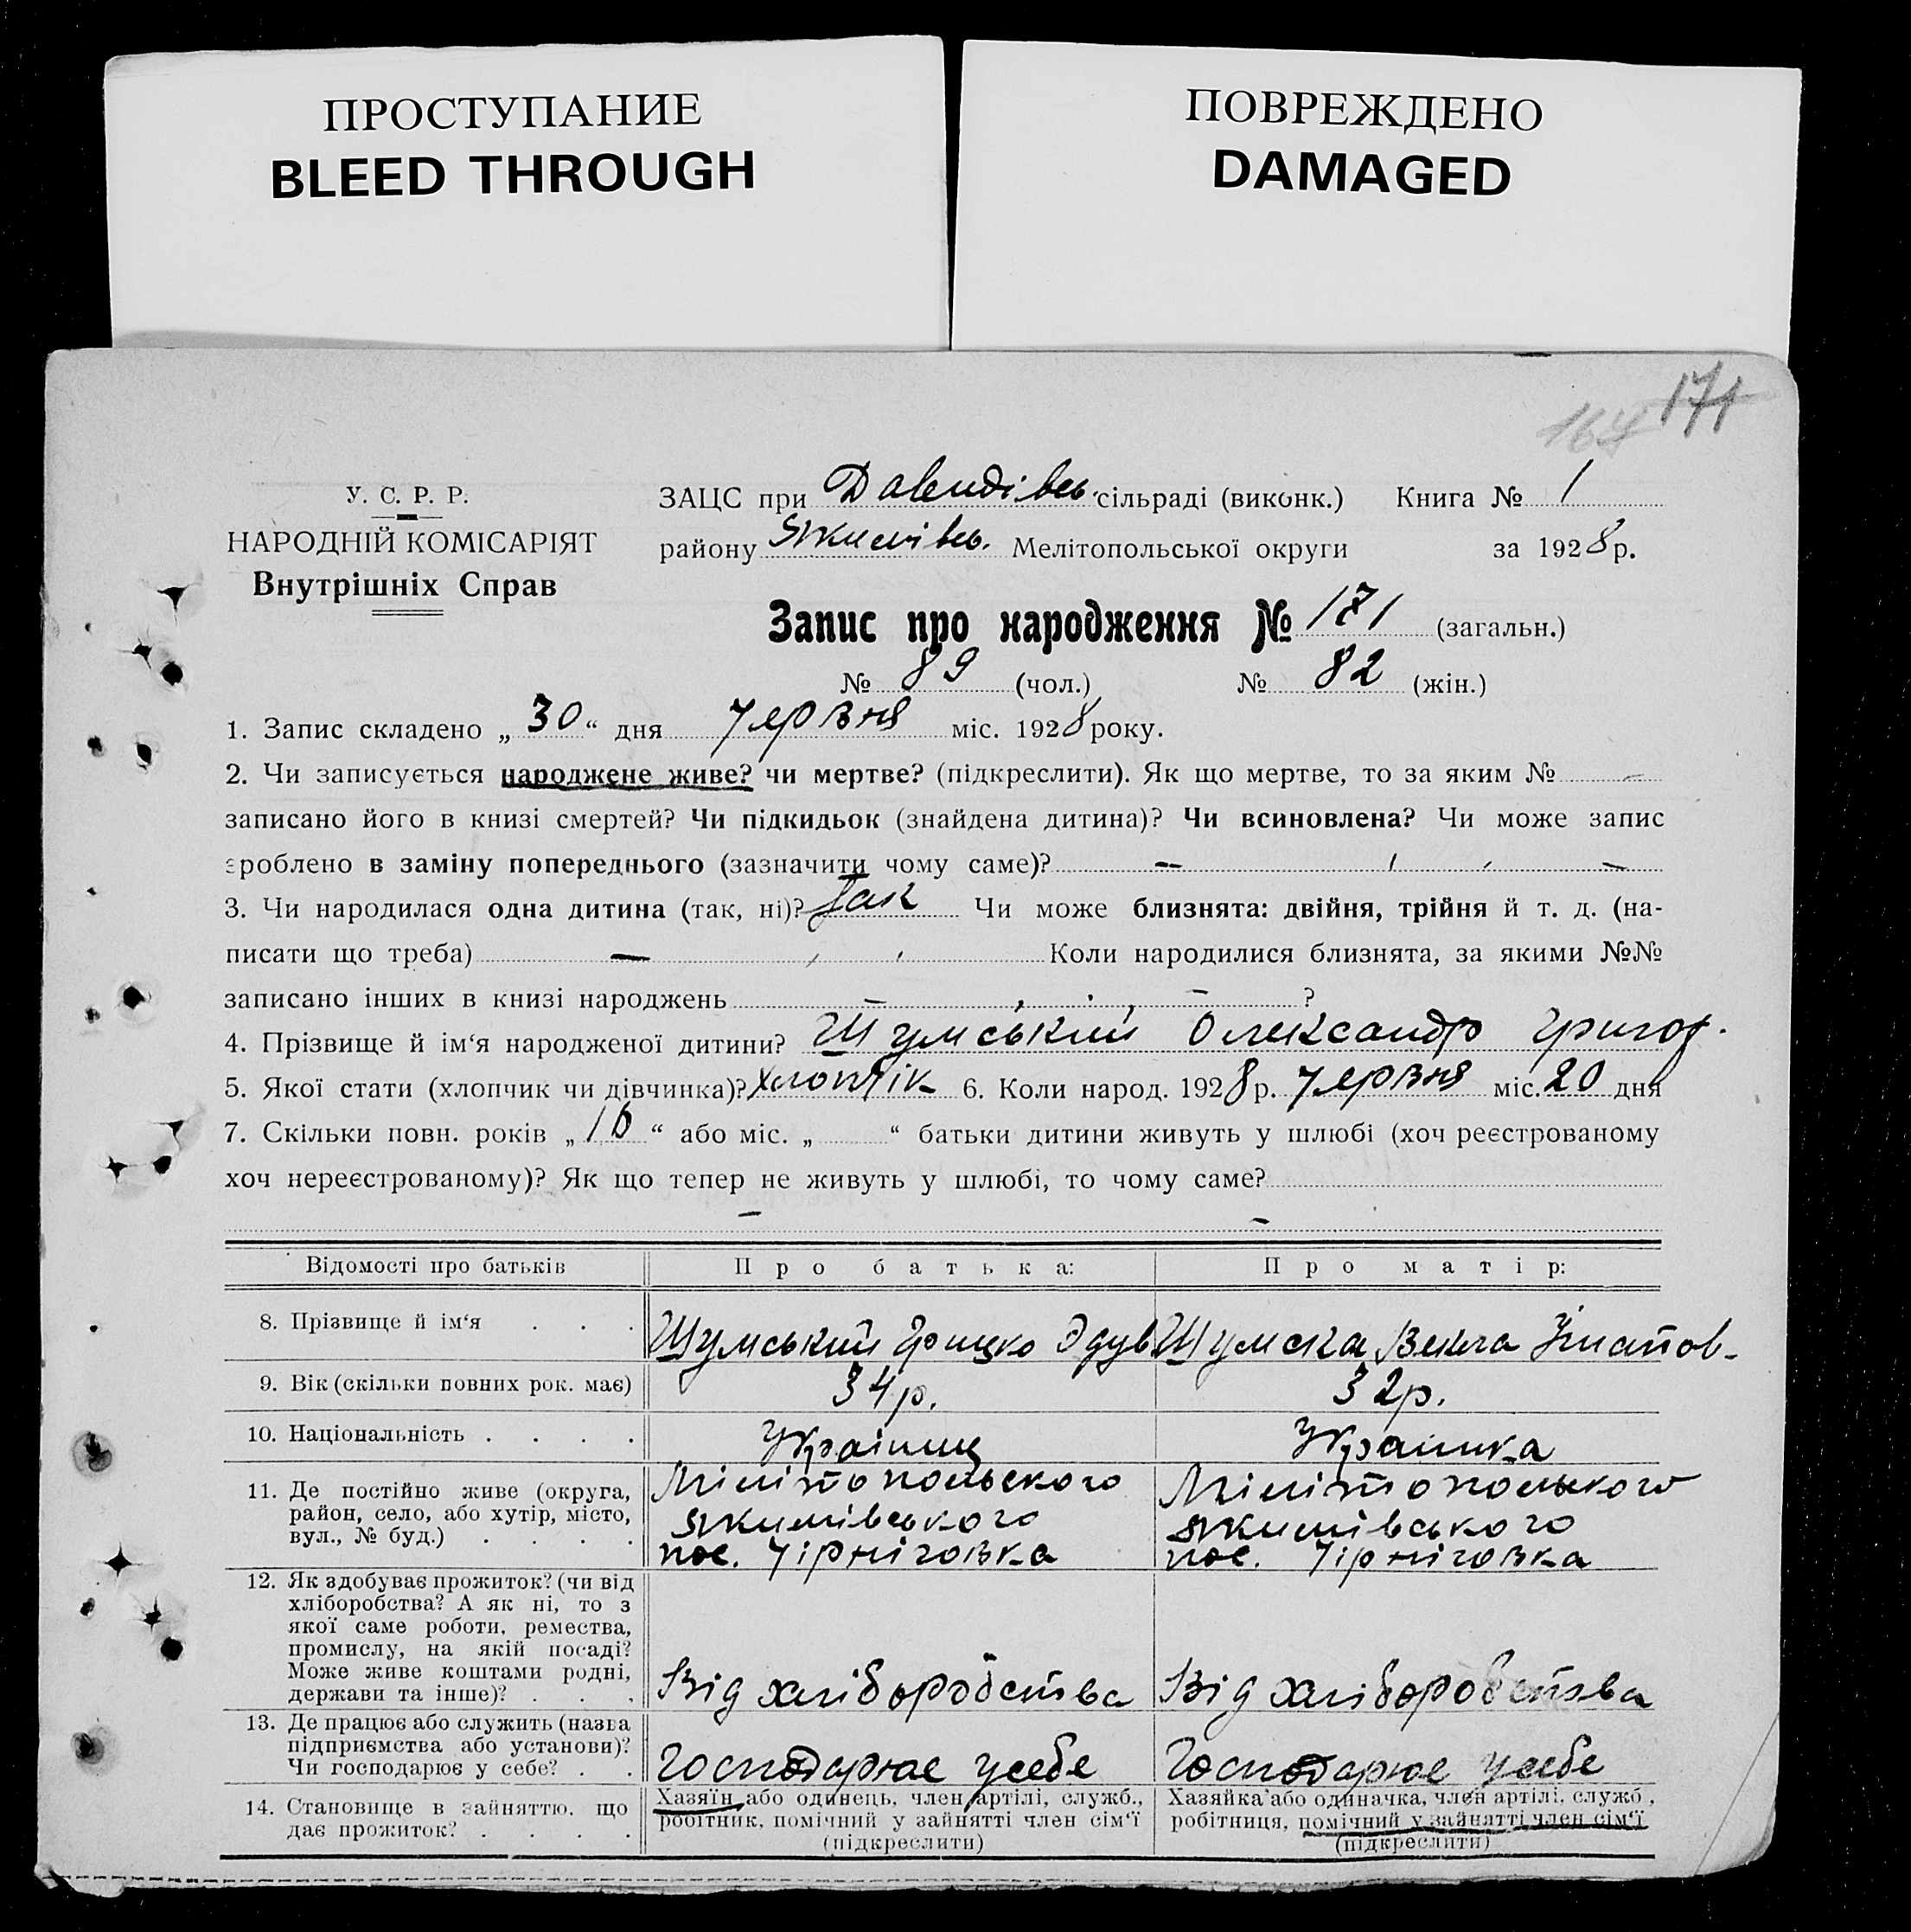 ПРОСТУПАНИЕ
BLEED THROUGH
ПОВРЕЖДЕНО
DAMAGED
171
164
У. С. Р. Р.
НАРОДНІЙ КОМІСАРІЯТ
Внутрішніх Справ
ЗАЦС при Давидівсь. сільраді (виконк.) Книга № 1
району Якимівсь. Мелітопольської округи за 1928 р.
Запис про народження № 171 (загальн.)
№ 89 (чол.) № 82 (жін.)
1. Запис складено „30“ дня червня міс. 1928 року.
2. Чи записується народжене живе? чи мертве? (підкреслити). Як що мертве, то за яким № –
записано його в книзі смертей? Чи підкидьок (знайдена дитина)? Чи всиновлена? Чи може запис
зроблено в заміну попереднього (зазначити чому саме)? –
3. Чи народилася одна дитина (так, ні)? Так Чи може близнята: двійня, трійня й т. д. (на-
писати що треба) – Коли народилися близнята, за якими №№
записано інших в книзі народжень – ?
4. Прізвище й ім‘я народженої дитини? Шумський Олександр Григор.
5. Якої стати (хлопчик чи дівчинка)? Хлопчік 6. Коли народ. 1928 р. червня міс. 20 дня
7. Скільки повн. років „10“ або міс. „ “ батьки дитини живуть у шлюбі (хоч реєстрованому
хоч нереєстрованому)? Як що тепер не живуть у шлюбі, то чому саме?
– –
Відомості про батьків Про батька: Про матір:
8. Прізвище й ім‘я . . . Шумський Грицко Эдув Шумска Векла Гнатов-
9. Вік (скільки повних рок. має) 34р. 32р.
10. Національність . . . . Українец Украинка
11. Де постійно живе (округа, район, село, або хутір, місто, вул., № буд.) . . . .
Мілітопольского
Якимівського
пос. Чірніговка
Мілітополького
Якимівського
пос. Чірніговка
12. Як здобуває прожиток? (чи від
хліборобства? А як ні, то з
якої саме роботи, ремества,
промислу, на якій посаді?
Може живе коштами родні,
держави та інше)? . . . Від хліборобства Від хліборобства
13. Де працює або служить (назва
підприємства або установи)?
Чи господарює у себе? . . Господарює усебе Господарює усебе
14. Становище в зайняттю, що
дає прожиток? . . . .
Хазяїн або одинець, член артілі, служб.,
робітник, помічний у зайнятті член сім‘ї
(підкреслити)
Хазяйка або одиначка, член артілі, служб.,
робітниця, помічний у зайнятті член сім‘ї
(підкреслити)